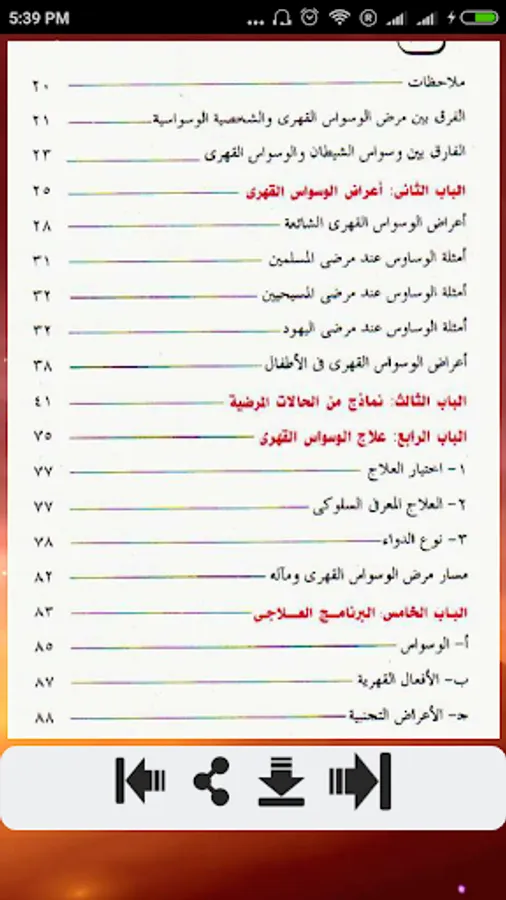 5:39 PM
ملاحظات ٢٠
الفرق بين مرض الوسواس القهرى والشخصية الوسواسية ٢١
الفارق بين وسواس الشيطان والوسواس القهرى ٢٣
الباب الثانى: أعراض الوسواس القهرى ٢٥
أعراض الوسواس القهرى الشائعة ٢٨
أمثلة الوساوس عند مرضى المسلمين ٣١
أمثلة الوساوس عند مرضى المسيحيين ٣٢
أمثلة الوساوس عند مرضى اليهود ٣٢
أعراض الوسواس القهرى فى الأطفال ٣٨
الباب الثالث: نماذج من الحالات المرضية ٤١
الباب الرابع: علاج الوسواس القهرى ٧٥
١- اختيار العلاج ٧٧
٢- العلاج المعرفى السلوكى ٧٧
٣- نوع الدواء ٧٨
مسار مرض الوسواس القهرى ومآله ٨٢
الباب الخامس: البرنامج العلاجى ٨٣
أ- الوسواس ٨٥
ب- الأفعال القهرية ٨٧
جـ- الأعراض التجنبية ٨٨